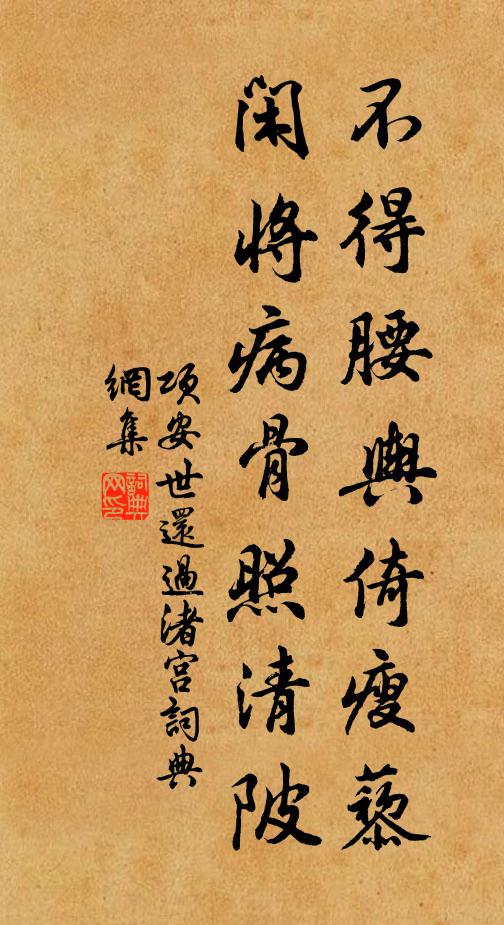 不得腰輿倚瘦藜
閑將病骨照清陂
項安世還過渚宮詞典
網集
詞典
网印